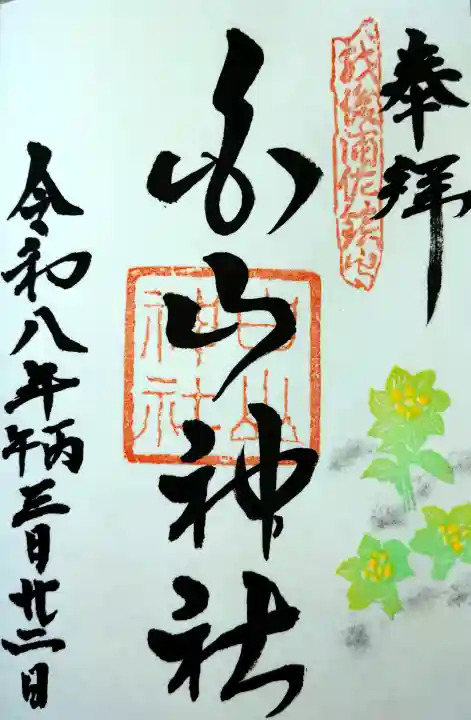 奉拝
越後浦佐鎮守
白山神社
白山
神社
令和八年丙午三月廿二日